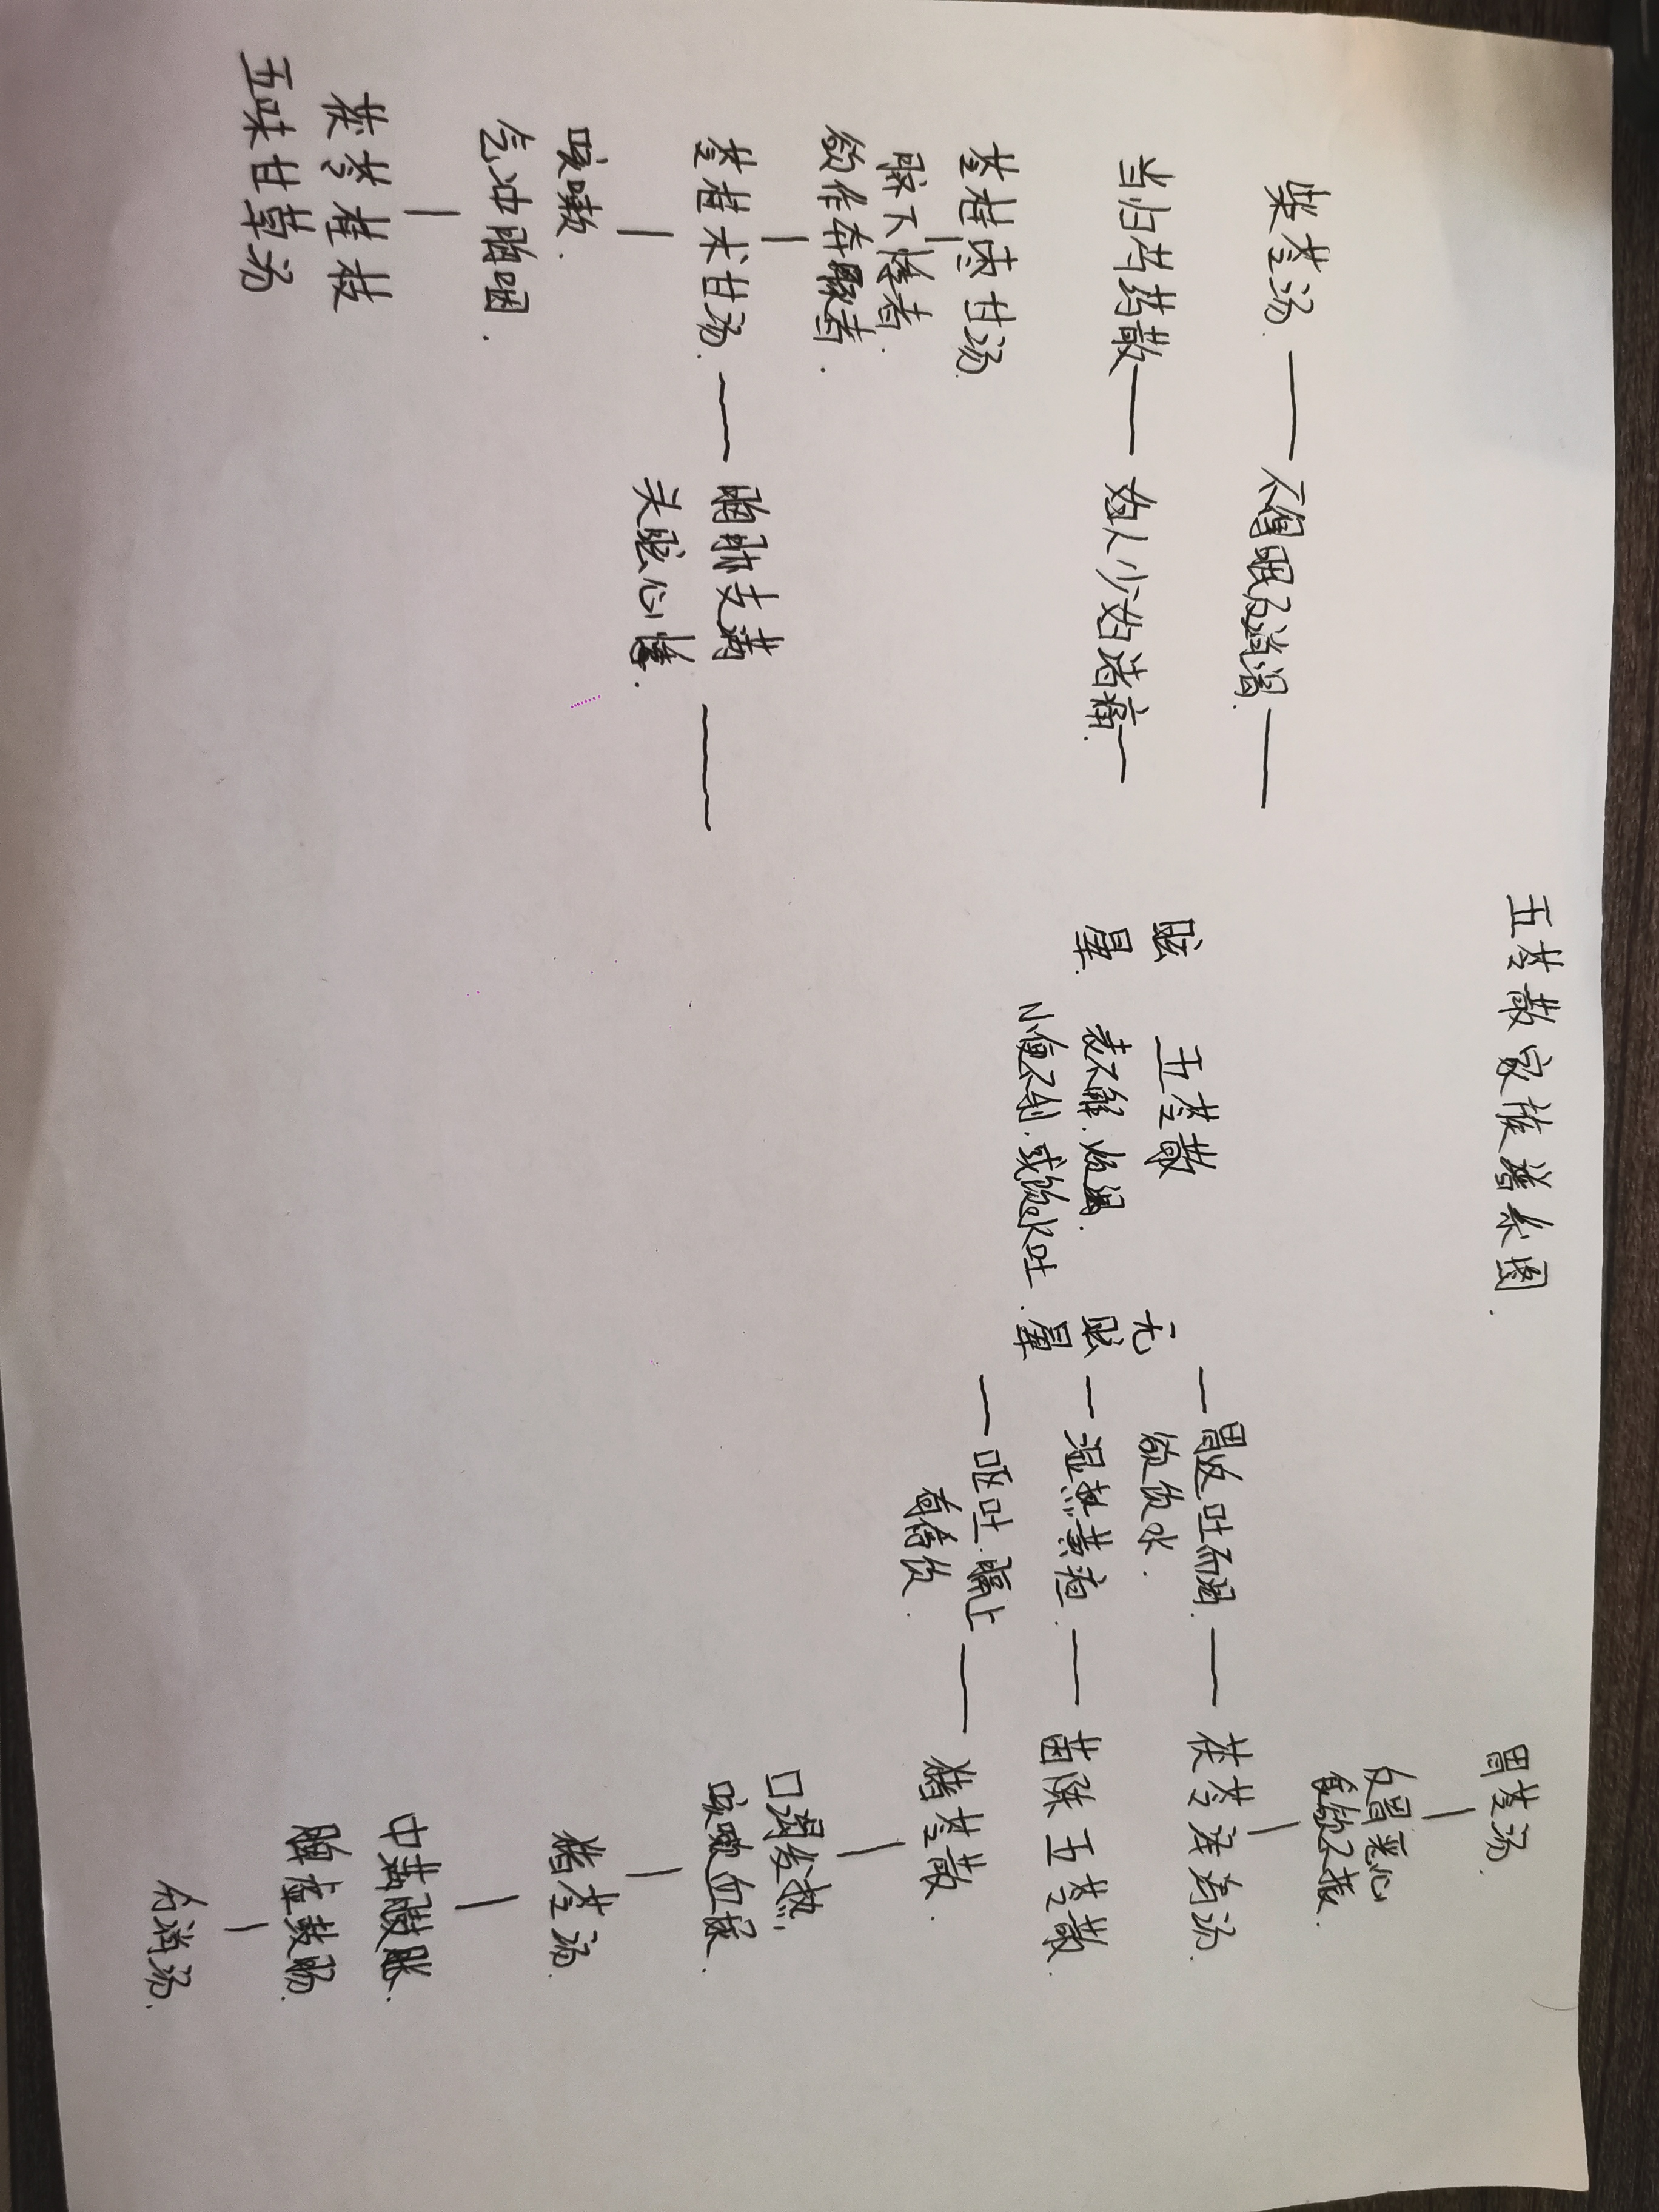 五苓散家族谱系图.
柴苓汤.
不得眠反消渴.
当归芍药散
妇人少妇诸痛.
苓桂枣甘汤.
脐下悸者.
欲作奔豚者.
苓桂术甘汤.
胸胁支满
头眩心悸.
咳嗽.
气冲胸咽.
茯苓桂枝
五味甘草汤
眩
晕.
五苓散
表不解.烦渴.
小便不利.或饮水吐.
无
眩
晕
胃返吐而渴.
欲饮水.
湿热黄疸.
呕吐.膈上
有停饮.
胃苓汤.
反胃恶心
食欲不振.
茯苓泽泻汤.
茵陈五苓散.
猪苓散.
口渴发热,
咳嗽血尿.
猪苓汤.
中满腹胀.
脾虚鼓肠.
分消汤.